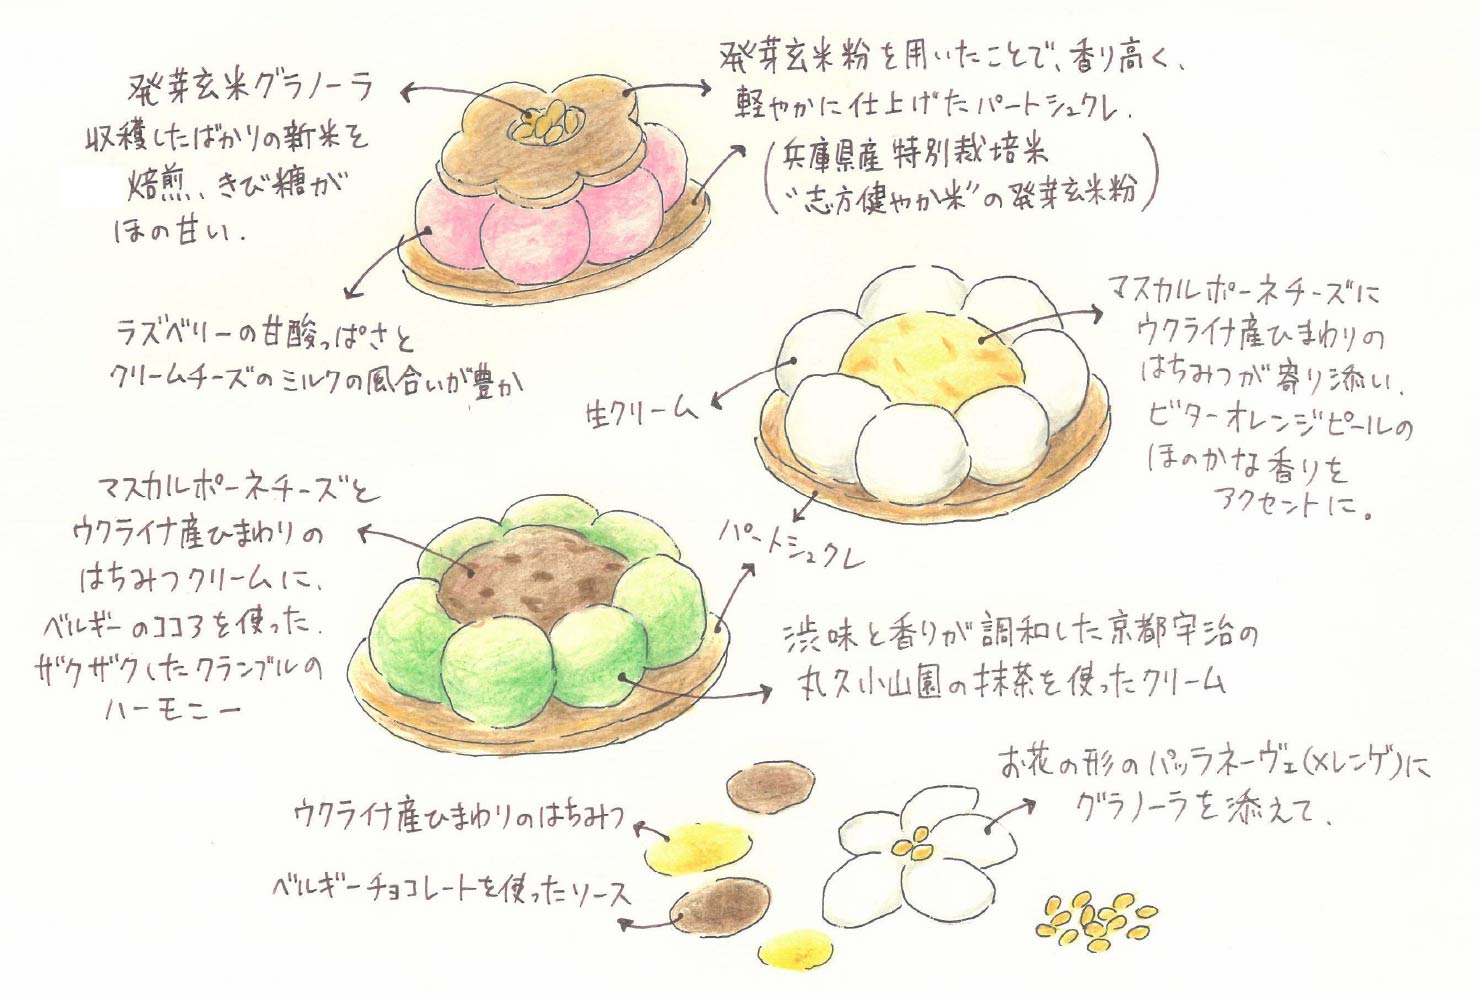 発芽玄米グラノーラ
収穫したばかりの新米を
焙煎、きび糖が
ほの甘い.
発芽玄米粉を用いたことで、香り高く、
軽やかに仕上げたパートシュクレ.
(兵庫県産特別栽培米
"志方健やか米"の発芽玄米粉)
ラズベリーの甘酸っぱさと
クリームチーズのミルクの風合いが豊か
マスカルポーネチーズに
ウクライナ産ひまわりの
はちみつが寄り添い.
ビターオレンジピールの
ほのかな香りを
アクセントに。
生クリーム
パートシュクレ
マスカルポーネチーズと
ウクライナ産ひまわりの
はちみつクリームに、
ベルギーのココアを使った.
ザクザクしたクランブルの
ハーモニー
渋味と香りが調和した京都宇治の
丸久小山園の抹茶を使ったクリーム
お花の形のパッラネーヴェ(メレンゲ)に
グラノーラを添えて、
ウクライナ産ひまわりのはちみつ
ベルギーチョコレートを使ったソース